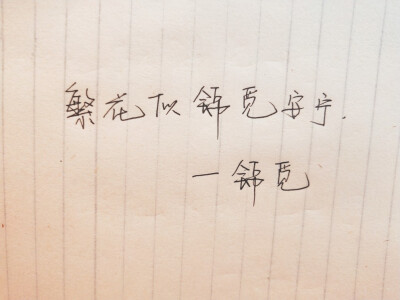 繁花似锦觅安宁.
一锦觅